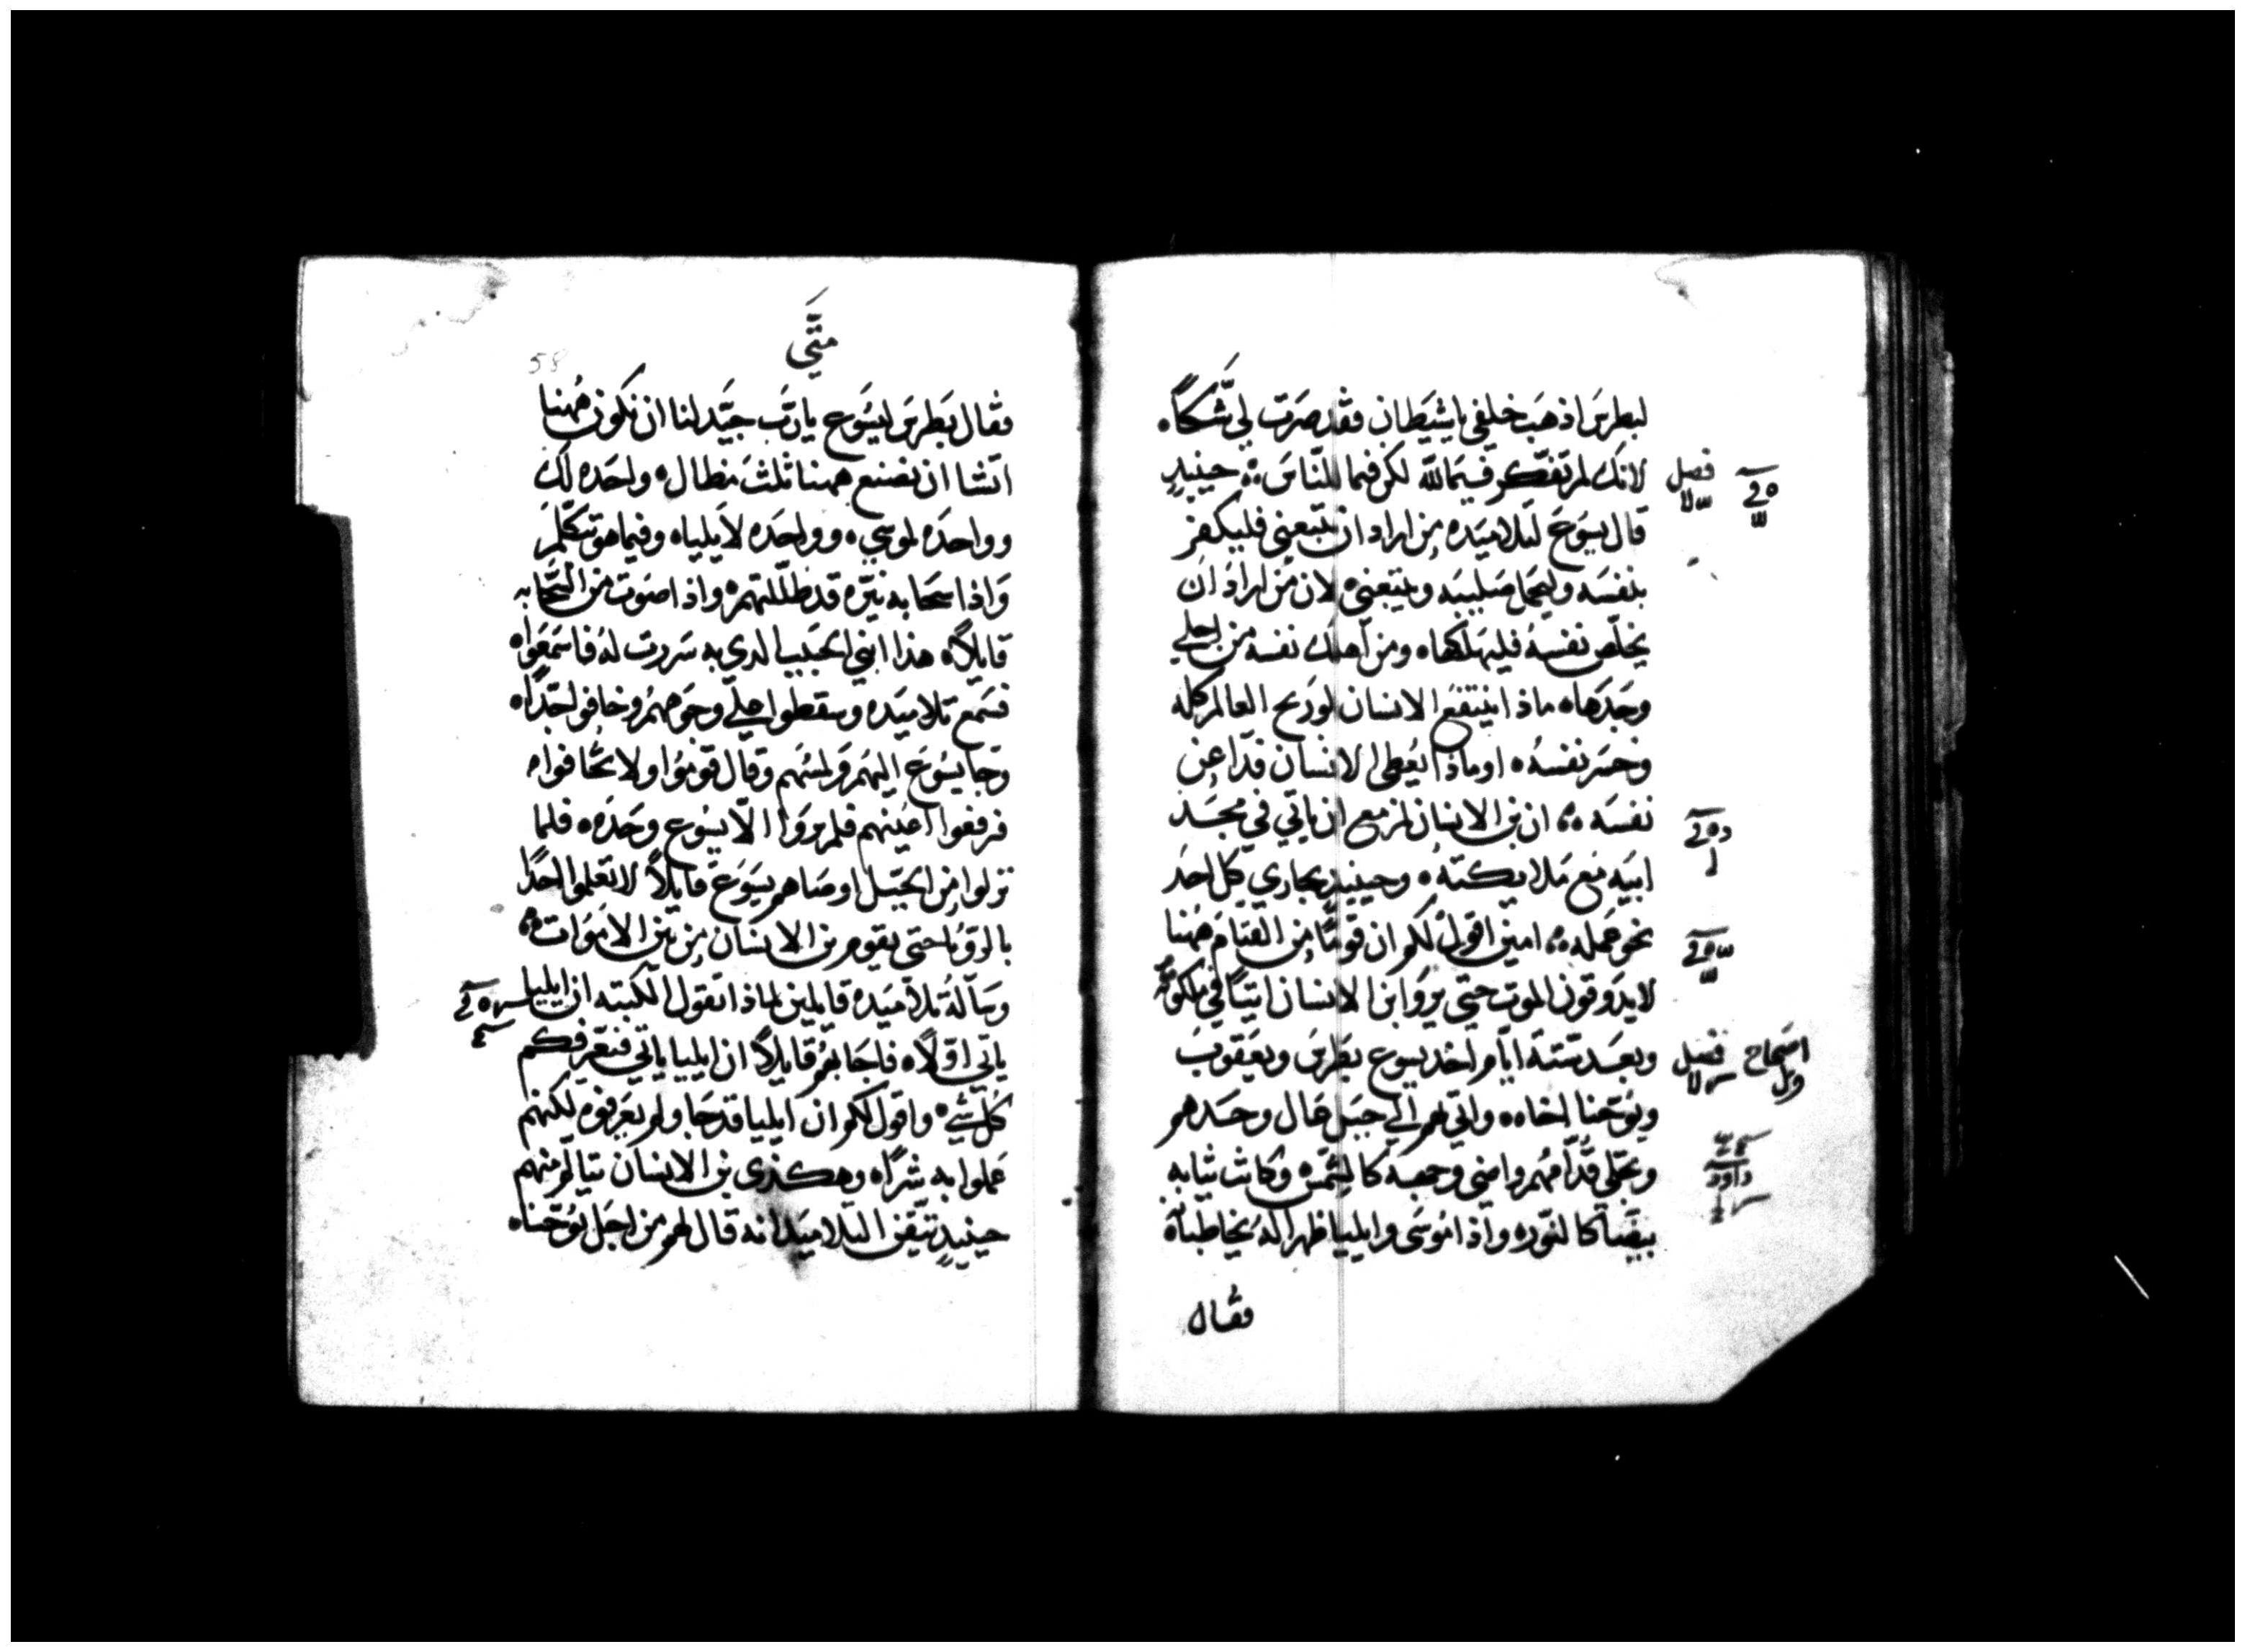 لبطرس اذهب خلفي يا شيطان فقد صرت لي شكاً ه
لانك لم تفكر فيما لله لكن فيما للناس ه حينيدٍ
فصل
قال يسوع لتلاميده من اراد ان يتبعني فليكفر
بنفسه وليحمل صليبه ويتبعني ه لان من اراد ان
يخلّص نفسه فليهلكها ه ومن اهلك نفسه من اجلي
وجدها ه ماذا ينتفع الانسان لو ربح العالم كله
وخسر نفسه ه او ماذا يُعطي الانسان فدا عن
نفسه ه ان بن الانسان لمزمع ان ياتي في مجد
ابيه مع ملايكته ه وحينيدٍ يجازي كل احد
نحو عمله ه امين اقول لكم ان قومًا من القيام ههنا
لا يدوقون الموت حتي يروا بن الانسان اتيًا في ملكوته
وبعد ستة ايام اخد يسوع بطرس ويعقوب
فصل
اصحاح
ويوحنا اخاه ه واتي بهم الي جبل عال وحدهم
وتجلي قدّامهم واضي وجهه كالشمس وكانت ثيابه
داود
بيضًا كالنور ه واذا موسي وايليا ظهرا له يخاطبانه
فقال
متَّي
58
فقال بطرس ليسوع يا رب جيّد لنا ان نكون ههنا
اتشا ان نصنع ههنا ثلث مظال ه واحده لك
وواحده لموسي ه وواحده لايليا ه وفيما هو يتكلم
واذا سحابه نيّره قد ظللتهم ه واذا صوت من السحابه
قايلاً ه هذا ابني الحبيب الدي به سررت له فاسمعوا ه
فسمع تلاميده وسقطوا علي وجوههم وخافوا جدًا ه
وجا يسوع اليهم ولمسهم وقال قوموا ولا تخافوا ه
فرفعوا اعينهم فلم يروا الا يسوع وحده ه فلما
نزلوا من الجبل اوصاهم يسوع قايلاً لا تعلموا احدًا
بالرويا حتي يقوم بن الانسان من بين الاموات ه
وساله تلاميده قايلين لماذا تقول الكتبه ان ايليا
ياتي اوّلاً ه فاجابهم قايلاً ان ايليا ياتي فيعرفكم
كل شي ه واقول لكم ان ايليا قد جا ولم يعرفوه لكنهم
عملوا به شرًا ه وهكذي بن الانسان يتالم منهم
حينيدٍ تيقن التلاميد انه قال لهم من اجل يوحنا ه